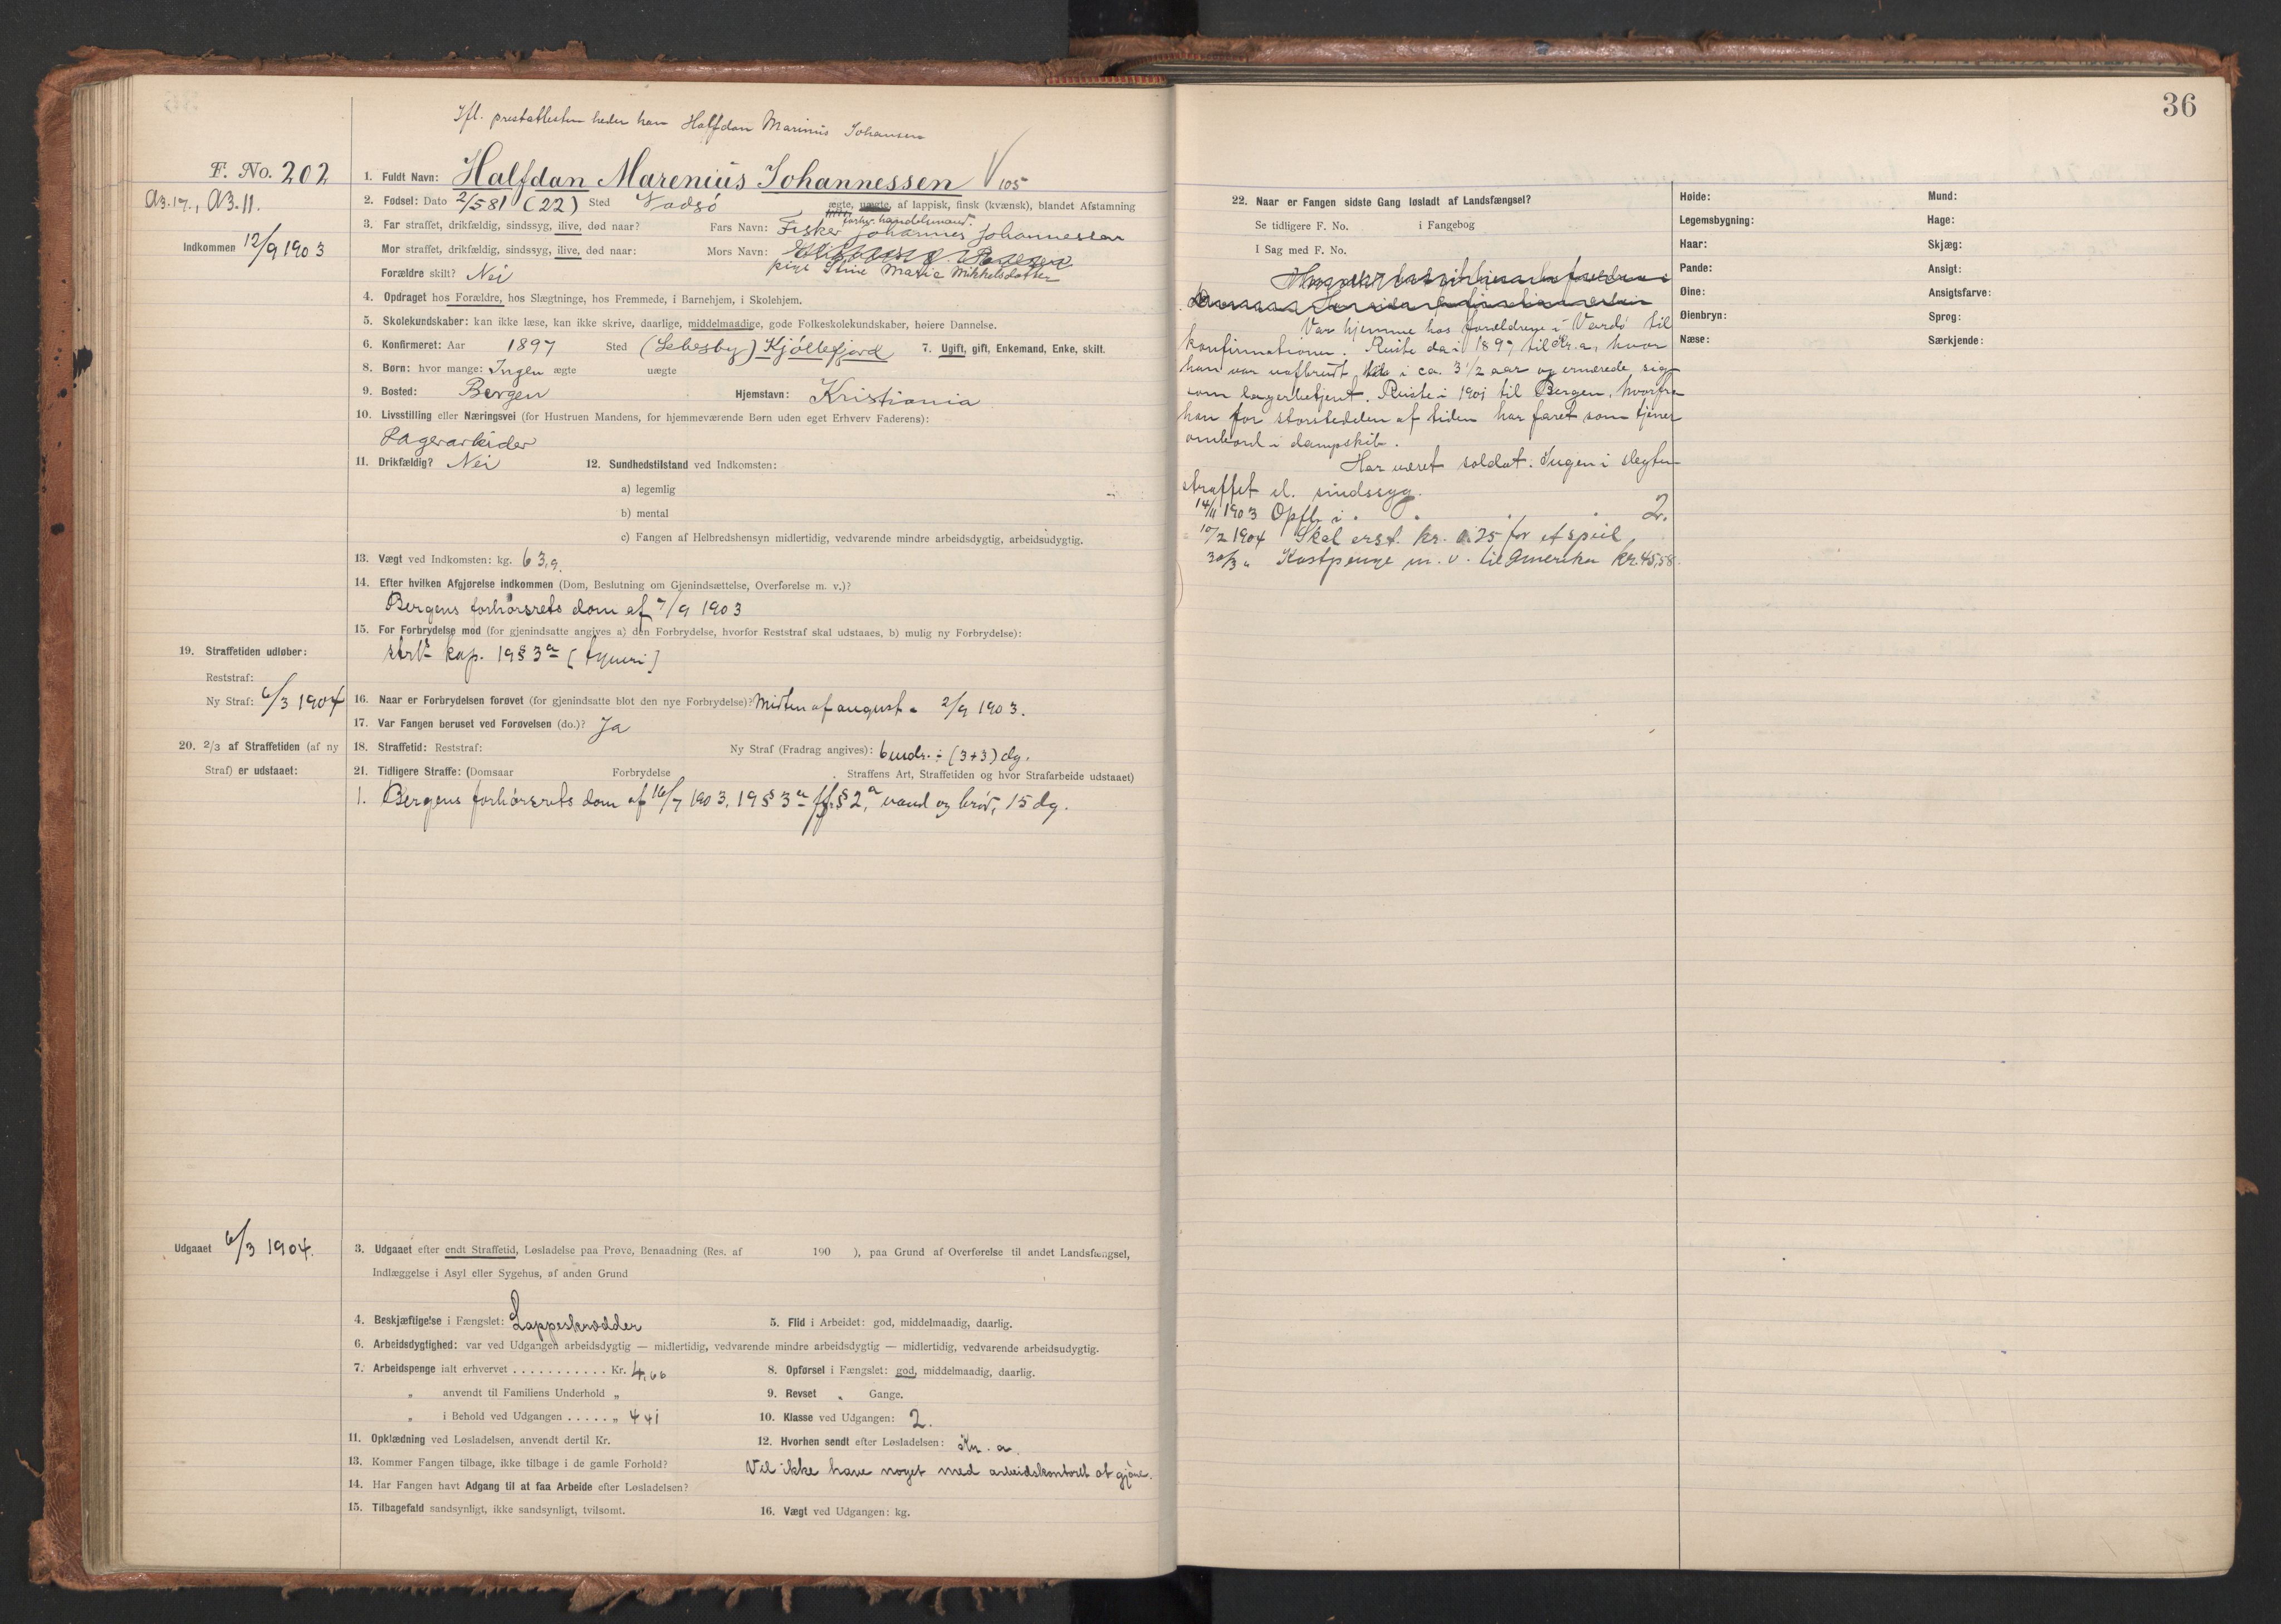 36
Ifl. prestattesten heder han Halfdan Marinius Johansen
F. No. 202
A3.17., A3.11.
Indkommen 12/9 1903
1. Fuldt Navn: Halfdan Marenius Johannessen V 105
2. Fødsel: Dato 2/5 81 (22) Sted Vadsö ægte, uægte, af lappisk, finsk (kvænsk), blandet Afstamning
3. Far straffet, drikfældig, sindssyg, ilive, død naar? Fars Navn: Fisker forhv. handelsmand Johannes Johannessen
Mor straffet, drikfældig, sindssyg, ilive, død naar: Mors Navn:
pige Stine Maria Mikkelsdatter
Forældre skilt? Nei
4. Opdraget hos Forældre, hos Slægtninge, hos Fremmede, i Barnehjem, i Skolehjem.
5. Skolekundskaber: kan ikke læse, kan ikke skrive, daarlige, middelmaadige, gode Folkeskolekundskaber, høiere Dannelse.
6. Konfirmeret: Aar 1897 Sted (Lebesby) Kjöllefjord 7. Ugift, gift, Enkemand, Enke, skilt.
8. Børn: hvor mange: Ingen ægte uægte
9. Bosted: Bergen Hjemstavn: Kristiania
10. Livsstilling eller Næringsvei (for Hustruen Mandens, for hjemmeværende Børn uden eget Erhverv Faderens):
Lagerarbeider
11. Drikfældig? Nei 12. Sundhedstilstand ved Indkomsten:
a) legemlig
b) mental
c) Fangen af Helbredshensyn midlertidig, vedvarende mindre arbeidsdygtig, arbeidsudygtig.
13. Vægt ved Indkomsten: kg. 63,9.
14. Efter hvilken Afgjørelse indkommen (Dom, Beslutning om Gjenindsættelse, Overførelse m. v.)?
Bergens forhørsrets dom af 7/9 1903
15. For Forbrydelse mod (for gjenindsatte angives a) den Forbrydelse, hvorfor Reststraf skal udstaaes, b) mulig ny Forbrydelse):
strl kap. 19 § 3 a [tyveri]
19. Straffetiden udløber:
Reststraf:
Ny Straf: 6/3 1904
16. Naar er Forbrydelsen forøvet (for gjenindsatte blot den nye Forbrydelse)? Midten af august - 2/9 1903.
17. Var Fangen beruset ved Forøvelsen (do.)? Ja
20. 2/3 af Straffetiden (af ny Straf) er udstaaet:
18. Straffetid: Reststraf: Ny Straf (Fradrag angives): 6 mdr. ÷ (3+3) dg.
21. Tidligere Straffe: (Domsaar Forbrydelse Straffens Art, Straffetiden og hvor Strafarbeide udstaaet)
1. Bergens forhørsrets dom af 16/7 1903, 19 § 3 a jfr. § 2, a vand og brød, 15 dg.
Udgaaet 6/3 1904.
3. Udgaaet efter endt Straffetid, Løsladelse paa Prøve, Benaadning (Res. af 190 ), paa Grund af Overførelse til andet Landsfængsel,
Indlæggelse i Asyl eller Sygehus, af anden Grund
4. Beskjæftigelse i Fængslet: Lappeskrædder 5. Flid i Arbeidet: god, middelmaadig, daarlig.
6. Arbeidsdygtighed: var ved Udgangen arbeidsdygtig — midlertidig, vedvarende mindre arbeidsdygtig — midlertidig, vedvarende arbeidsudygtig.
7. Arbeidspenge ialt erhvervet . . . . . . . . . . . Kr. 4,66 8. Opførsel i Fængslet: god, middelmaadig, daarlig.
„ anvendt til Familiens Underhold „ 9. Revset „ Gange.
„ i Behold ved Udgangen . . . . . „ 4 41 10. Klasse ved Udgangen: 2.
11. Opklædning ved Løsladelsen, anvendt dertil Kr. 12. Hvorhen sendt efter Løsladelsen: Kr. a.
13. Kommer Fangen tilbage, ikke tilbage i de gamle Forhold? Vil ikke have noget med arbeidskontoret at gjøre.
14. Har Fangen havt Adgang til at faa Arbeide efter Løsladelsen?
15. Tilbagefald sandsynligt, ikke sandsynligt, tvilsomt. 16. Vægt ved Udgangen: kg.
22. Naar er Fangen sidste Gang løsladt af Landsfængsel?
Se tidligere F. No. i Fangebog
I Sag med F. No.
Var hjemme hos forældrene i Vardö til
konfirmationen. Reiste da i 1897 til Kr.a, hvor
han var uafbrudt i ca. 3 1/2 aar og ernærede sig
som lagerbetjent. Reiste i 1901 til Bergen, hvorfra
han for størstedelen af tiden har faret som tjener
ombord i dampskib.
Har været soldat. Ingen i slegten
straffet el. sindssyg.
14/11 1903 Opfl. i . . . . 2.
10/2 1904 Skal erst. kr. 0.25 for et speil
30/3 " Kostpenge m. v. til Amerika kr. 45,58.
Høide:
Legemsbygning:
Haar:
Pande:
Øine:
Øienbryn:
Næse:
Mund:
Hage:
Skjæg:
Ansigt:
Ansigtsfarve:
Sprog:
Særkjende: